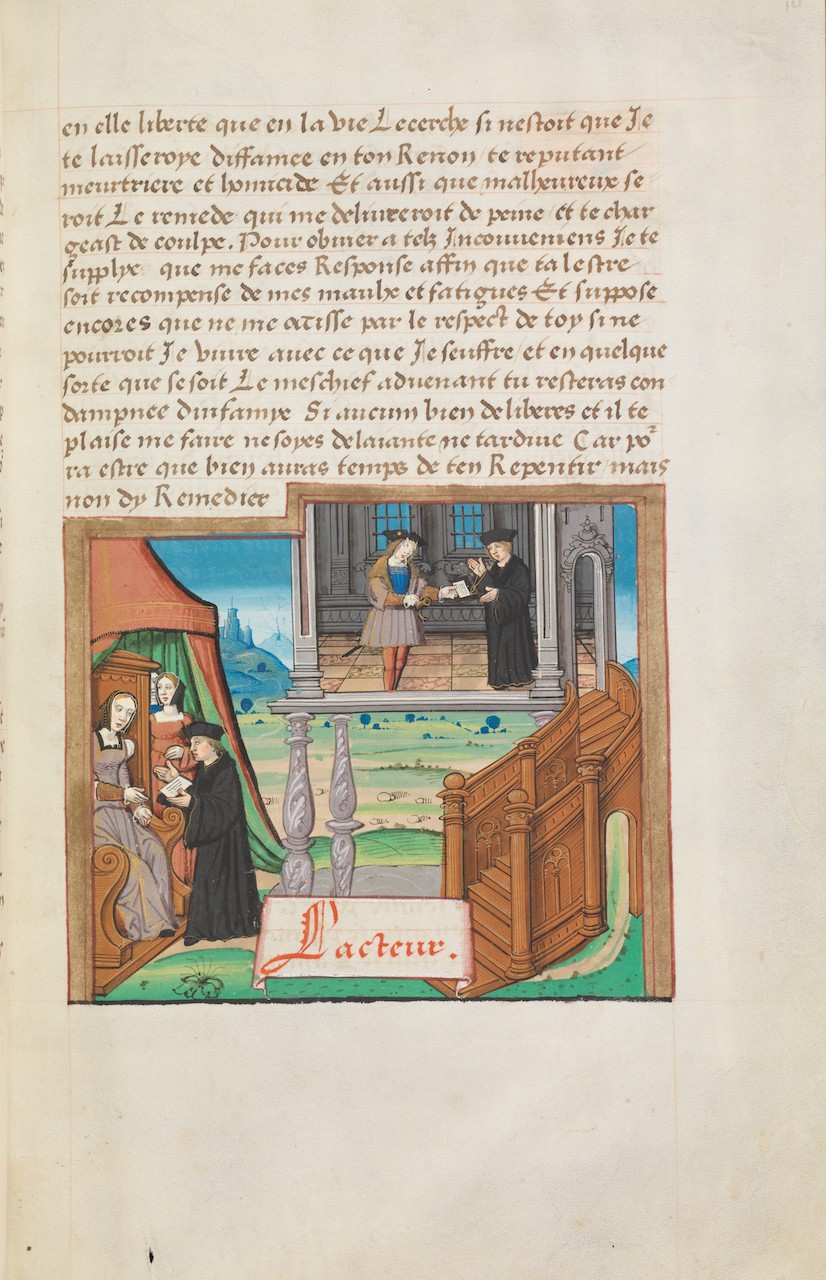 en elle liberte que en la vie Lecerche si nestoit que Je
te laisseroye diffamee en ton Renon te reputant
meurtriere et homicide Et aussi que malheureux se
roit Le remede qui me deliureroit de peine et te char
geast de coulpe. Pour obuier a telz Inconueniens Je te
supplye que me faces Response affin que ta lestre
soit recompense de mes maulx et fatigues Et suppose
encores que ne me occisse par le respect de toy si ne
pourroit Je viure auec ce que Je seuffre et en quelque
sorte que se soit Le meschief aduenant tu resteras con
dampnee dinfamye Si aucum bien deliberes et il te
plaise me faire ne soyes delaiante ne tardiue Car po
ra estre que bien auras temps de ten Repentir mais
non dy Remedier
Lacteur.